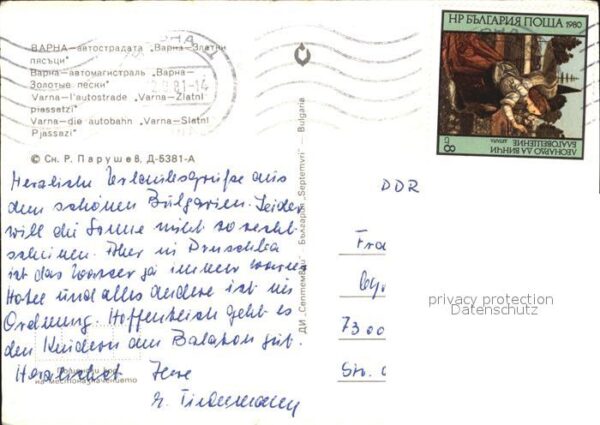 ВАРНА—автострадата „Варна—Златни
пясъци"
Варна—автомагистраль „Варна—
Золотые пески"
Varna—l'autostrade „Varna—Zlatni
piassatzi"
Varna—die autobahn „Varna—Slatni
Pjassazi"
© Сн. Р. Парушев, Д-5381-А
Herzliche Urlaubsgrüße aus
dem schönen Bulgarien. Leider
will die Sonne nicht so recht
scheinen. Aber in Druschba
ist das Wasser ja immer warm.
Hotel und alles andere ist in
Ordnung. Hoffentlich geht es
den Kindern am Balaton gut.
Herzlichst Ihre
ДИ „Септември" - България „Septemvri" — Bulgaria
НР БЪЛГАРИЯ ПОЩА 1980
ЛЕОНАРДО ДА ВИНЧИ
БЛАГОВЕЩЕНИЕ
8
81-14
DDR
Fra
7300
Str.
privacy protection
Datenschutz
на местоназначението